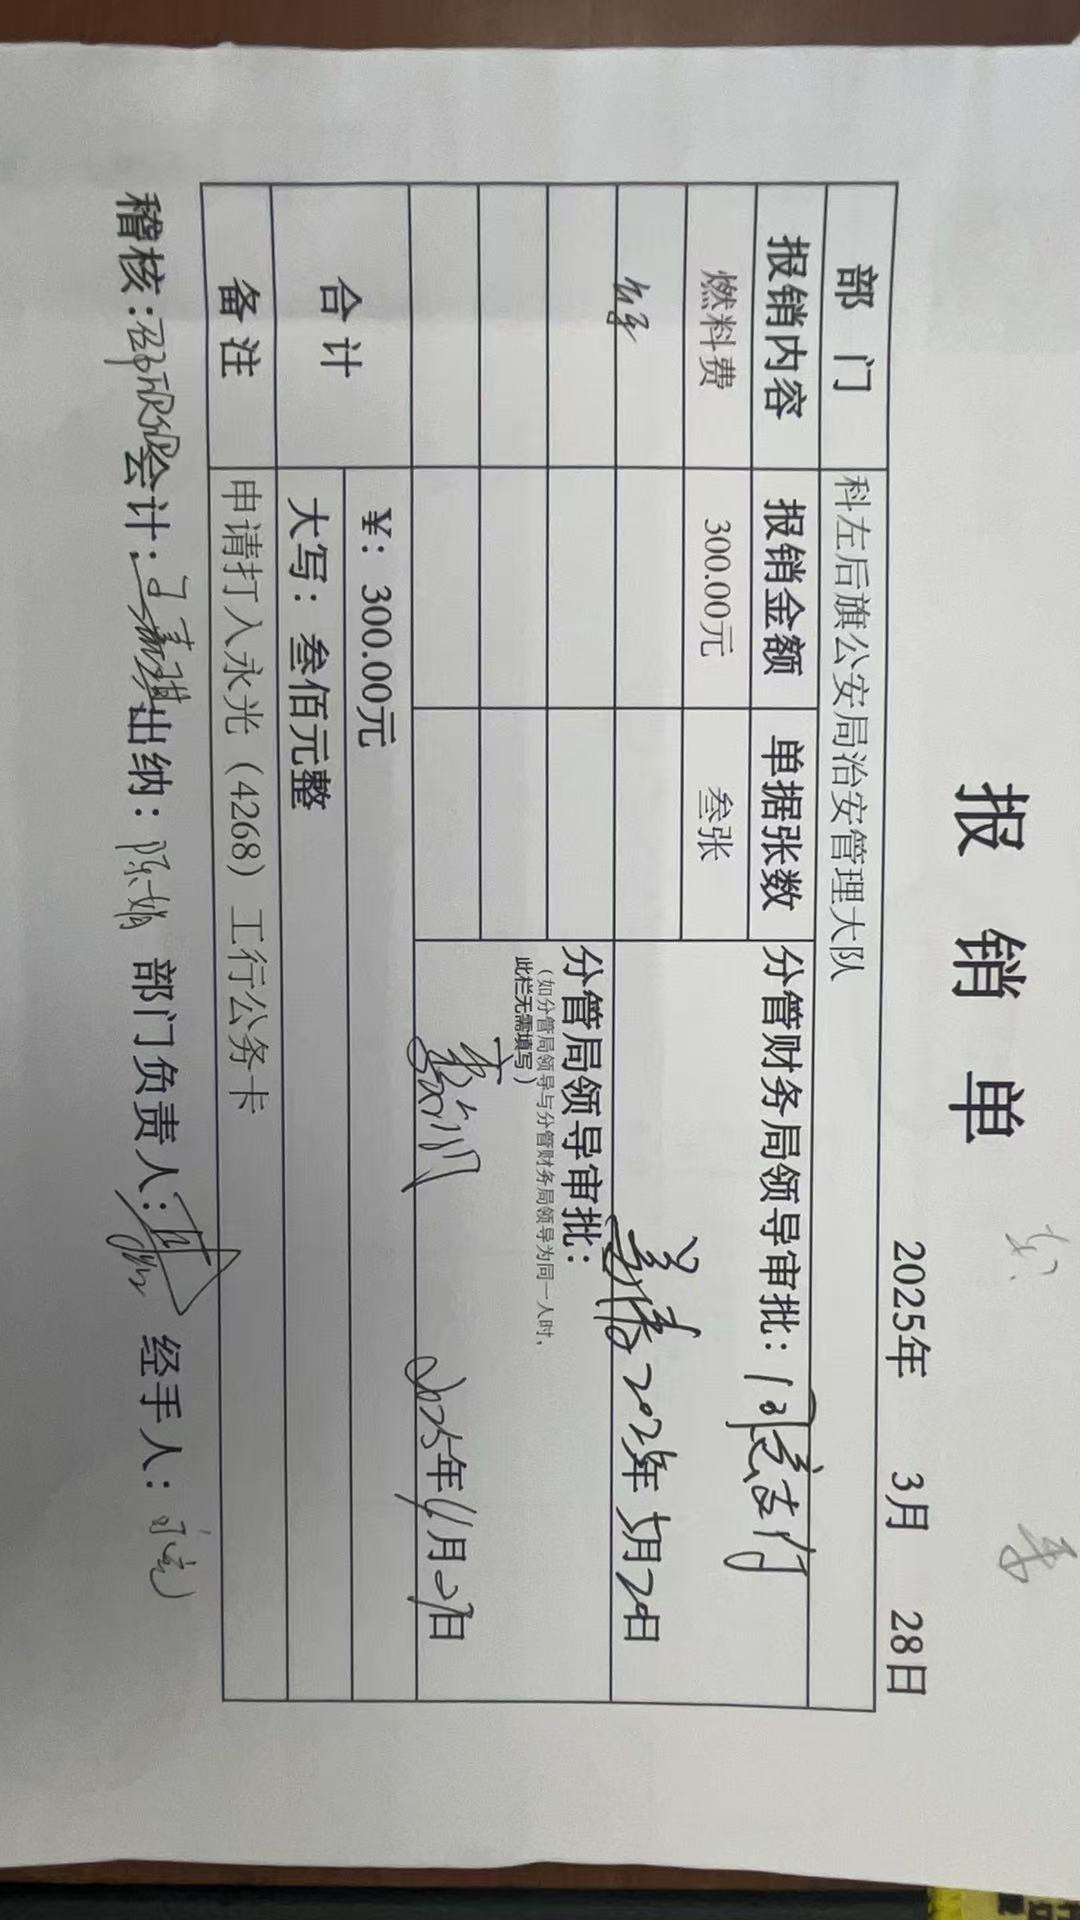 报 销 单
2025年 3月 28日
部 门 科左后旗公安局治安管理大队
报销内容 报销金额 单据张数 分管财务局领导审批：
燃料费 300.00元 叁张
2025年 月 日
分管局领导审批：
（如分管局领导与分管财务局领导为同一人时，
此栏无需填写）
2025年 月 日
合 计 ¥：300.00元
大写：叁佰元整
备 注 申请打入永光（4268）工行公务卡
稽核： 会计： 出纳：陈娟 部门负责人： 经手人：永光